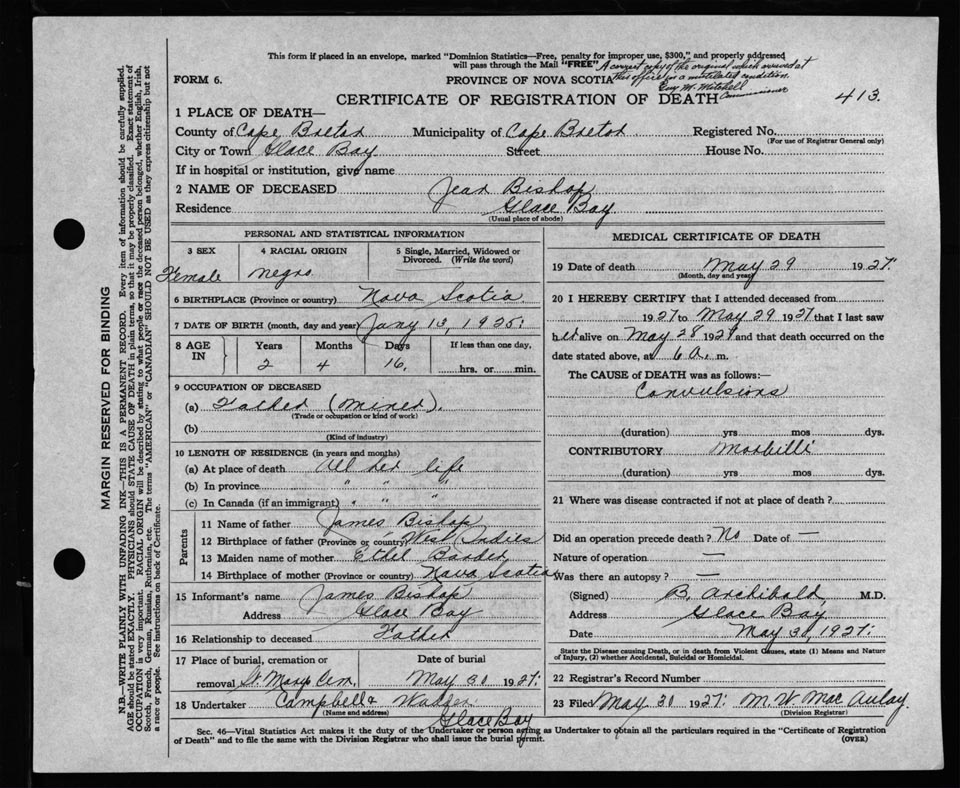 This form if placed in an envelope, marked "Dominion Statistics—Free, penalty for improper use, $300," and properly addressed
will pass through the Mail "FREE" A correct copy of the original which arrived at
this office in a mutilated condition.
Guy M. Mitchell
Commissioner
FORM 6.
PROVINCE OF NOVA SCOTIA
CERTIFICATE OF REGISTRATION OF DEATH
413.
1 PLACE OF DEATH—
County of Cape Breton Municipality of Cape Breton Registered No.
(For use of Registrar General only)
City or Town Glace Bay Street House No.
If in hospital or institution, give name
2 NAME OF DECEASED Jean Bishop
Residence Glace Bay
(Usual place of abode)
PERSONAL AND STATISTICAL INFORMATION
3 SEX 4 RACIAL ORIGIN 5 Single, Married, Widowed or
Divorced. (Write the word)
Female Negro
6 BIRTHPLACE (Province or country) Nova Scotia
7 DATE OF BIRTH (month, day and year) Jany 13, 1925.
8 AGE IN Years Months Days If less than one day,
2 4 16. hrs. or min.
9 OCCUPATION OF DECEASED
(a) Father (miner).
(Trade or occupation or kind of work)
(b)
(Kind of industry)
10 LENGTH OF RESIDENCE (in years and months)
(a) At place of death All her life
(b) In province " " "
(c) In Canada (if an immigrant) " " "
Parents
11 Name of father James Bishop
12 Birthplace of father (Province or country) West Indies
13 Maiden name of mother Ethel
14 Birthplace of mother (Province or country) Nova Scotia
15 Informant's name James Bishop
Address Glace Bay
16 Relationship to deceased Father
17 Place of burial, cremation or Date of burial
removal St. Marys Cem. May 30 1927.
18 Undertaker Campbell &
(Name and address) Glace Bay
MEDICAL CERTIFICATE OF DEATH
19 Date of death May 29 1927.
(Month, day and year)
20 I HEREBY CERTIFY that I attended deceased from
1927 to May 29 1927 that I last saw
her alive on May 28 1927 and that death occurred on the
date stated above, at 6 a. m.
The CAUSE of DEATH was as follows:—
Convulsions
(duration) yrs mos dys.
CONTRIBUTORY Morbilli
(duration) yrs mos dys.
21 Where was disease contracted if not at place of death?
Did an operation precede death? No Date of —
Nature of operation —
Was there an autopsy? —
(Signed) B. Archibald, M.D.
Address Glace Bay
Date May 30, 1927.
State the Disease causing Death, or in death from Violent Causes, state (1) Means and Nature
of Injury, (2) whether Accidental, Suicidal or Homicidal.
22 Registrar's Record Number
23 Filed May 30 1927. M. W. MacAulay
(Division Registrar)
Sec. 46—Vital Statistics Act makes it the duty of the Undertaker or person acting as Undertaker to obtain all the particulars required in the "Certificate of Registration
of Death" and to file the same with the Division Registrar who shall issue the burial permit. (OVER)
MARGIN RESERVED FOR BINDING
N.B.—WRITE PLAINLY WITH UNFADING INK—THIS IS A PERMANENT RECORD. Every item of information should be carefully supplied.
AGE should be stated EXACTLY. PHYSICIANS should STATE CAUSE OF DEATH in plain terms, so that it may be properly classified. Exact statement of
OCCUPATION is very important. RACIAL ORIGIN will be described by stating to what people or race the deceased person belonged, whether English, Irish,
Scotch, French, German, Russian, Ruthenian, etc. The terms "AMERICAN" or "CANADIAN" SHOULD NOT BE USED as they express citizenship but not
a race or people. See instructions on back of Certificate.